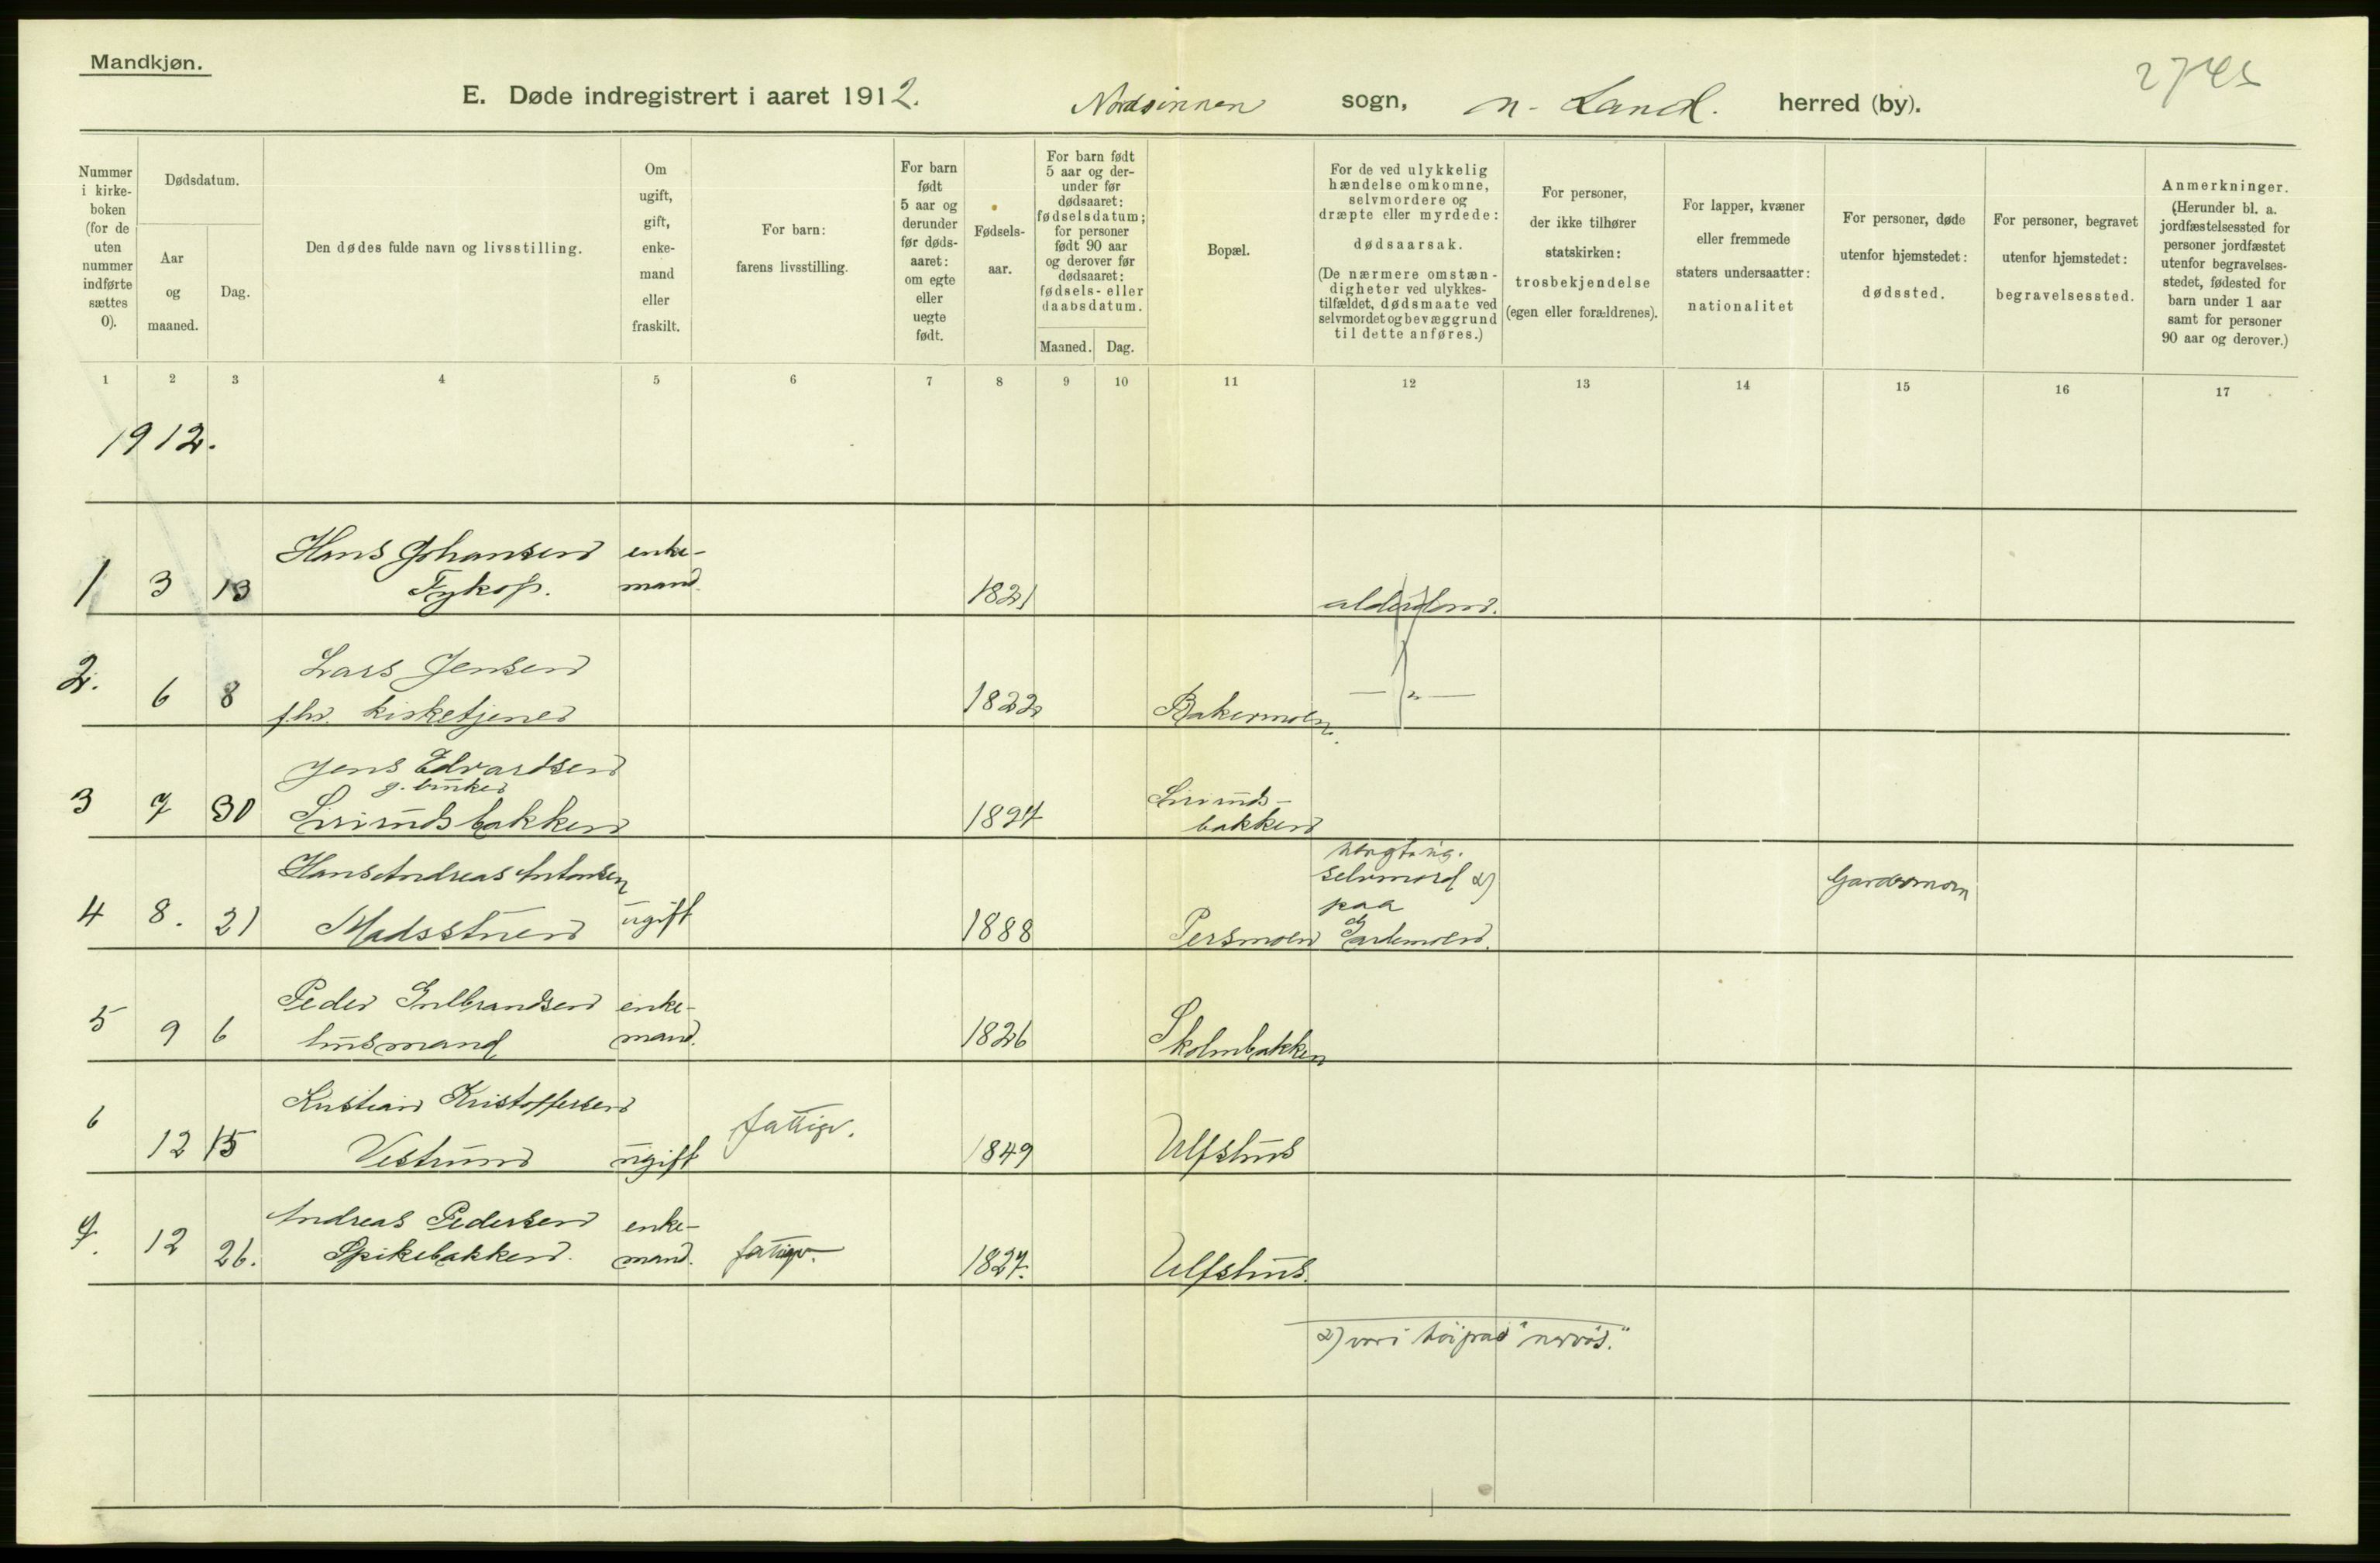 Mandkjøn.
E. Døde indregistrert i aaret 1912. Nordsinnen sogn, n. Land. herred (by).
Nummer i kirke-boken (for de uten nummer indførte sættes 0).
Dødsdatum.
Aar og maaned.
Dag.
Den dødes fulde navn og livsstilling.
Om ugift, gift, enke-mand eller fraskilt.
For barn: farens livsstilling.
For barn født 5 aar og derunder før døds-aaret: om egte eller uegte født.
Fødsels-aar.
For barn født 5 aar og der-under før dødsaaret: fødselsdatum; for personer født 90 aar og derover før dødsaaret: fødsels- eller daabsdatum.
Maaned.
Dag.
Bopæl.
For de ved ulykkelig hændelse omkomne, selvmordere og dræpte eller myrdede: dødsaarsak. (De nærmere omstæn-digheter ved ulykkes-tilfældet, dødsmaate ved selvmordet og bevæggrund til dette anføres.)
For personer, der ikke tilhører statskirken: trosbekjendelse (egen eller forældrenes).
For lapper, kvæner eller fremmede staters undersaatter: nationalitet
For personer, døde utenfor hjemstedet: dødssted.
For personer, begravet utenfor hjemstedet: begravelsessted.
Anmerkninger. (Herunder bl. a. jordfæstelsessted for personer jordfæstet utenfor begravelses-stedet, fødested for barn under 1 aar samt for personer 90 aar og derover.)
1 2 3 4 5 6 7 8 9 10 11 12 13 14 15 16 17
1912.
Hans Johansen enke-
1 3 13 mand. 1821
Lars Jensen
2. 6 8 kirketjener 1822 Bakermoen.
Jens Edvardsen
3 7 30 1827
bakken
Hans Andreas Antonsen selvmord 2) Gardermoen
paa
4 8. 21 ugift 1888 Persmoen Gardemoen.
Peder Gulbrandsen enke-
5 9 6 husmand mand. 1826
Kristian Kristoffersen fattigv.
6 12 15 ugift 1849 Ulfshus
Andreas Pedersen enke-
7. 12 26. Spikebakken. mand. fattigv. 1827. Ulfshus.
2) var i høi grad "nervøs."